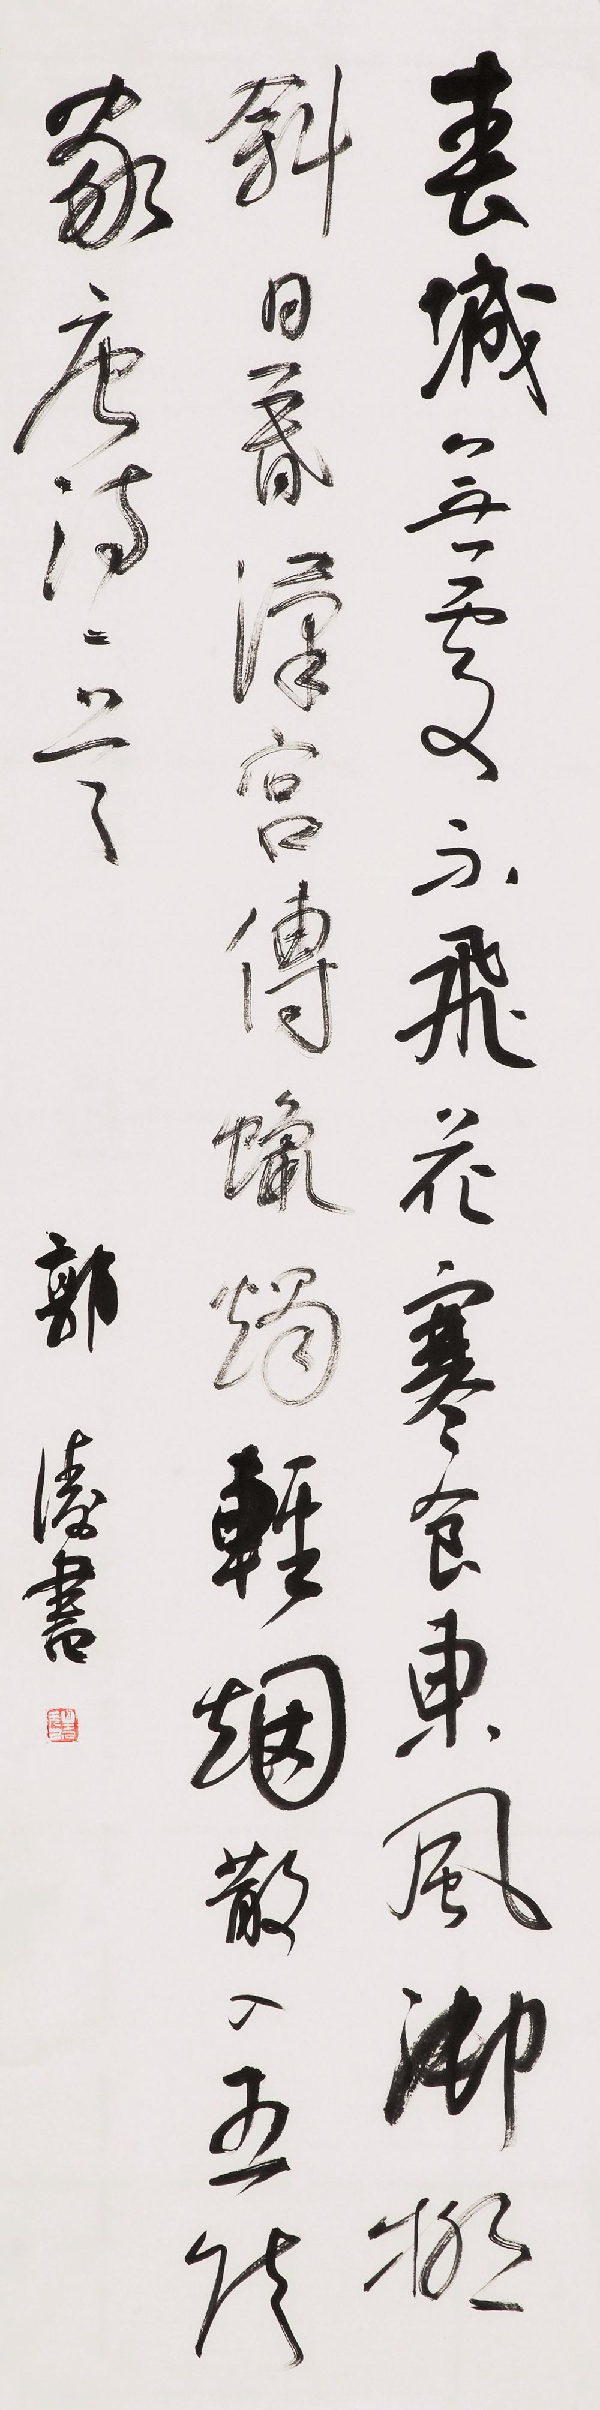 春城無處不飛花寒食東風御柳
斜日暮漢宮傳蠟燭輕烟散入五侯
家唐詩一首
郭濤書